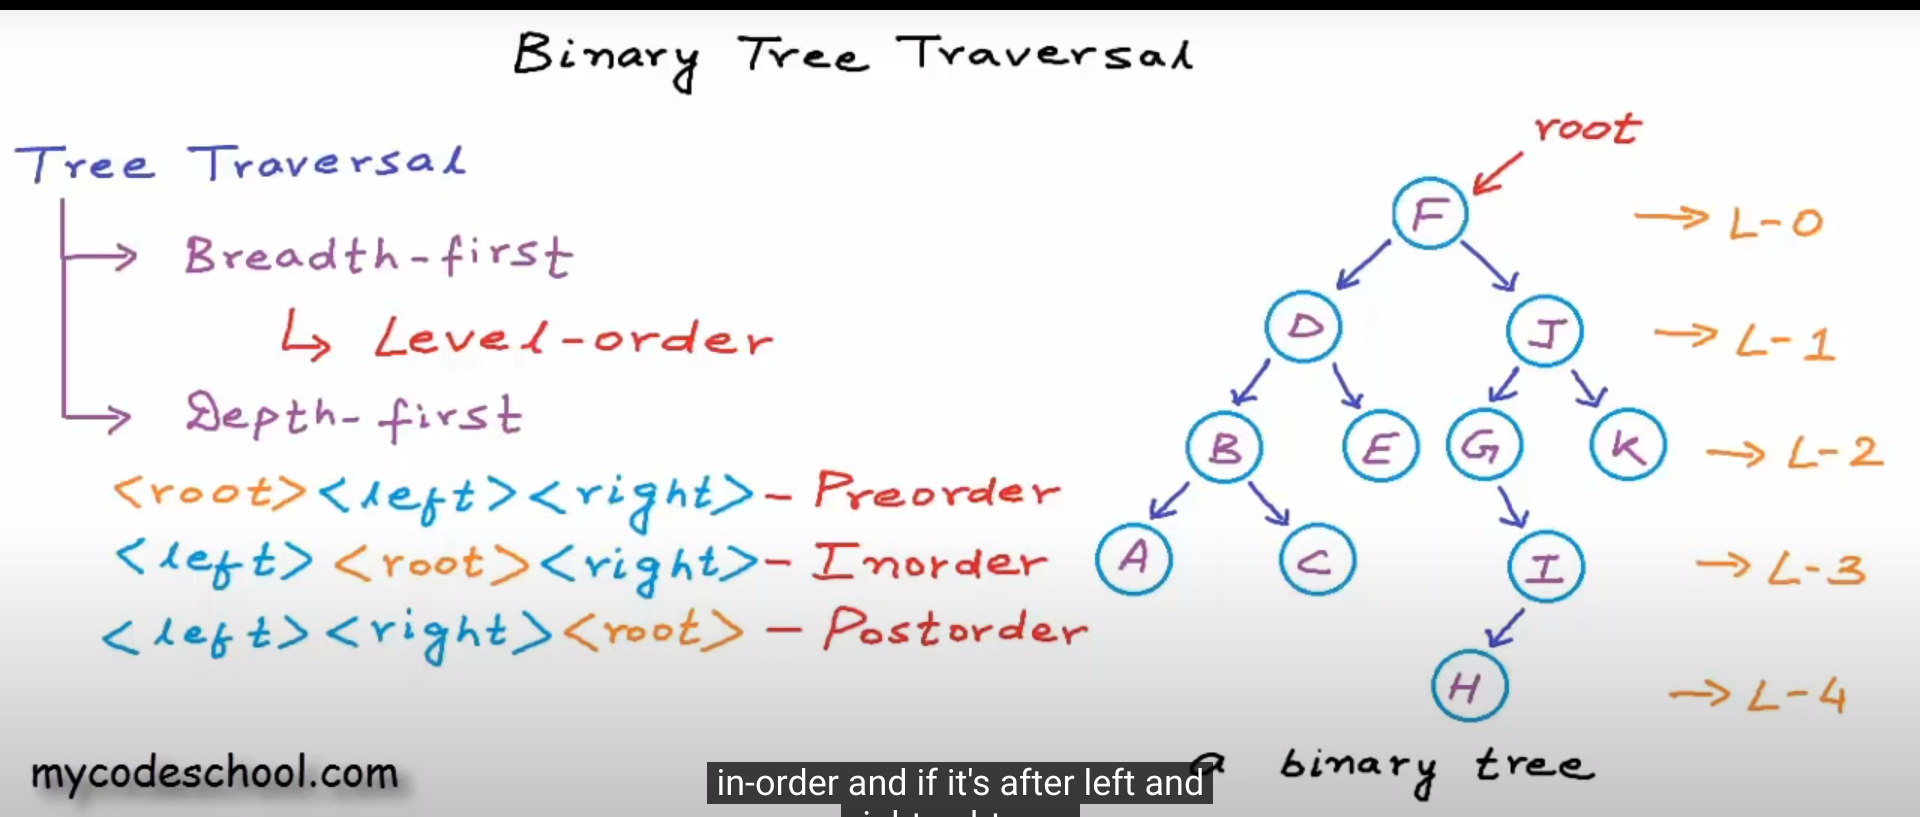 Binary Tree Traversal
Tree Traversal
Breadth-first
Level-order
Depth-first
<root><left><right> - Preorder
<left><root><right> - Inorder
<left><right><root> - Postorder
root
F
L-0
D
J
L-1
B
E
G
K
L-2
A
C
I
L-3
H
L-4
a binary tree
mycodeschool.com
in-order and if it's after left and